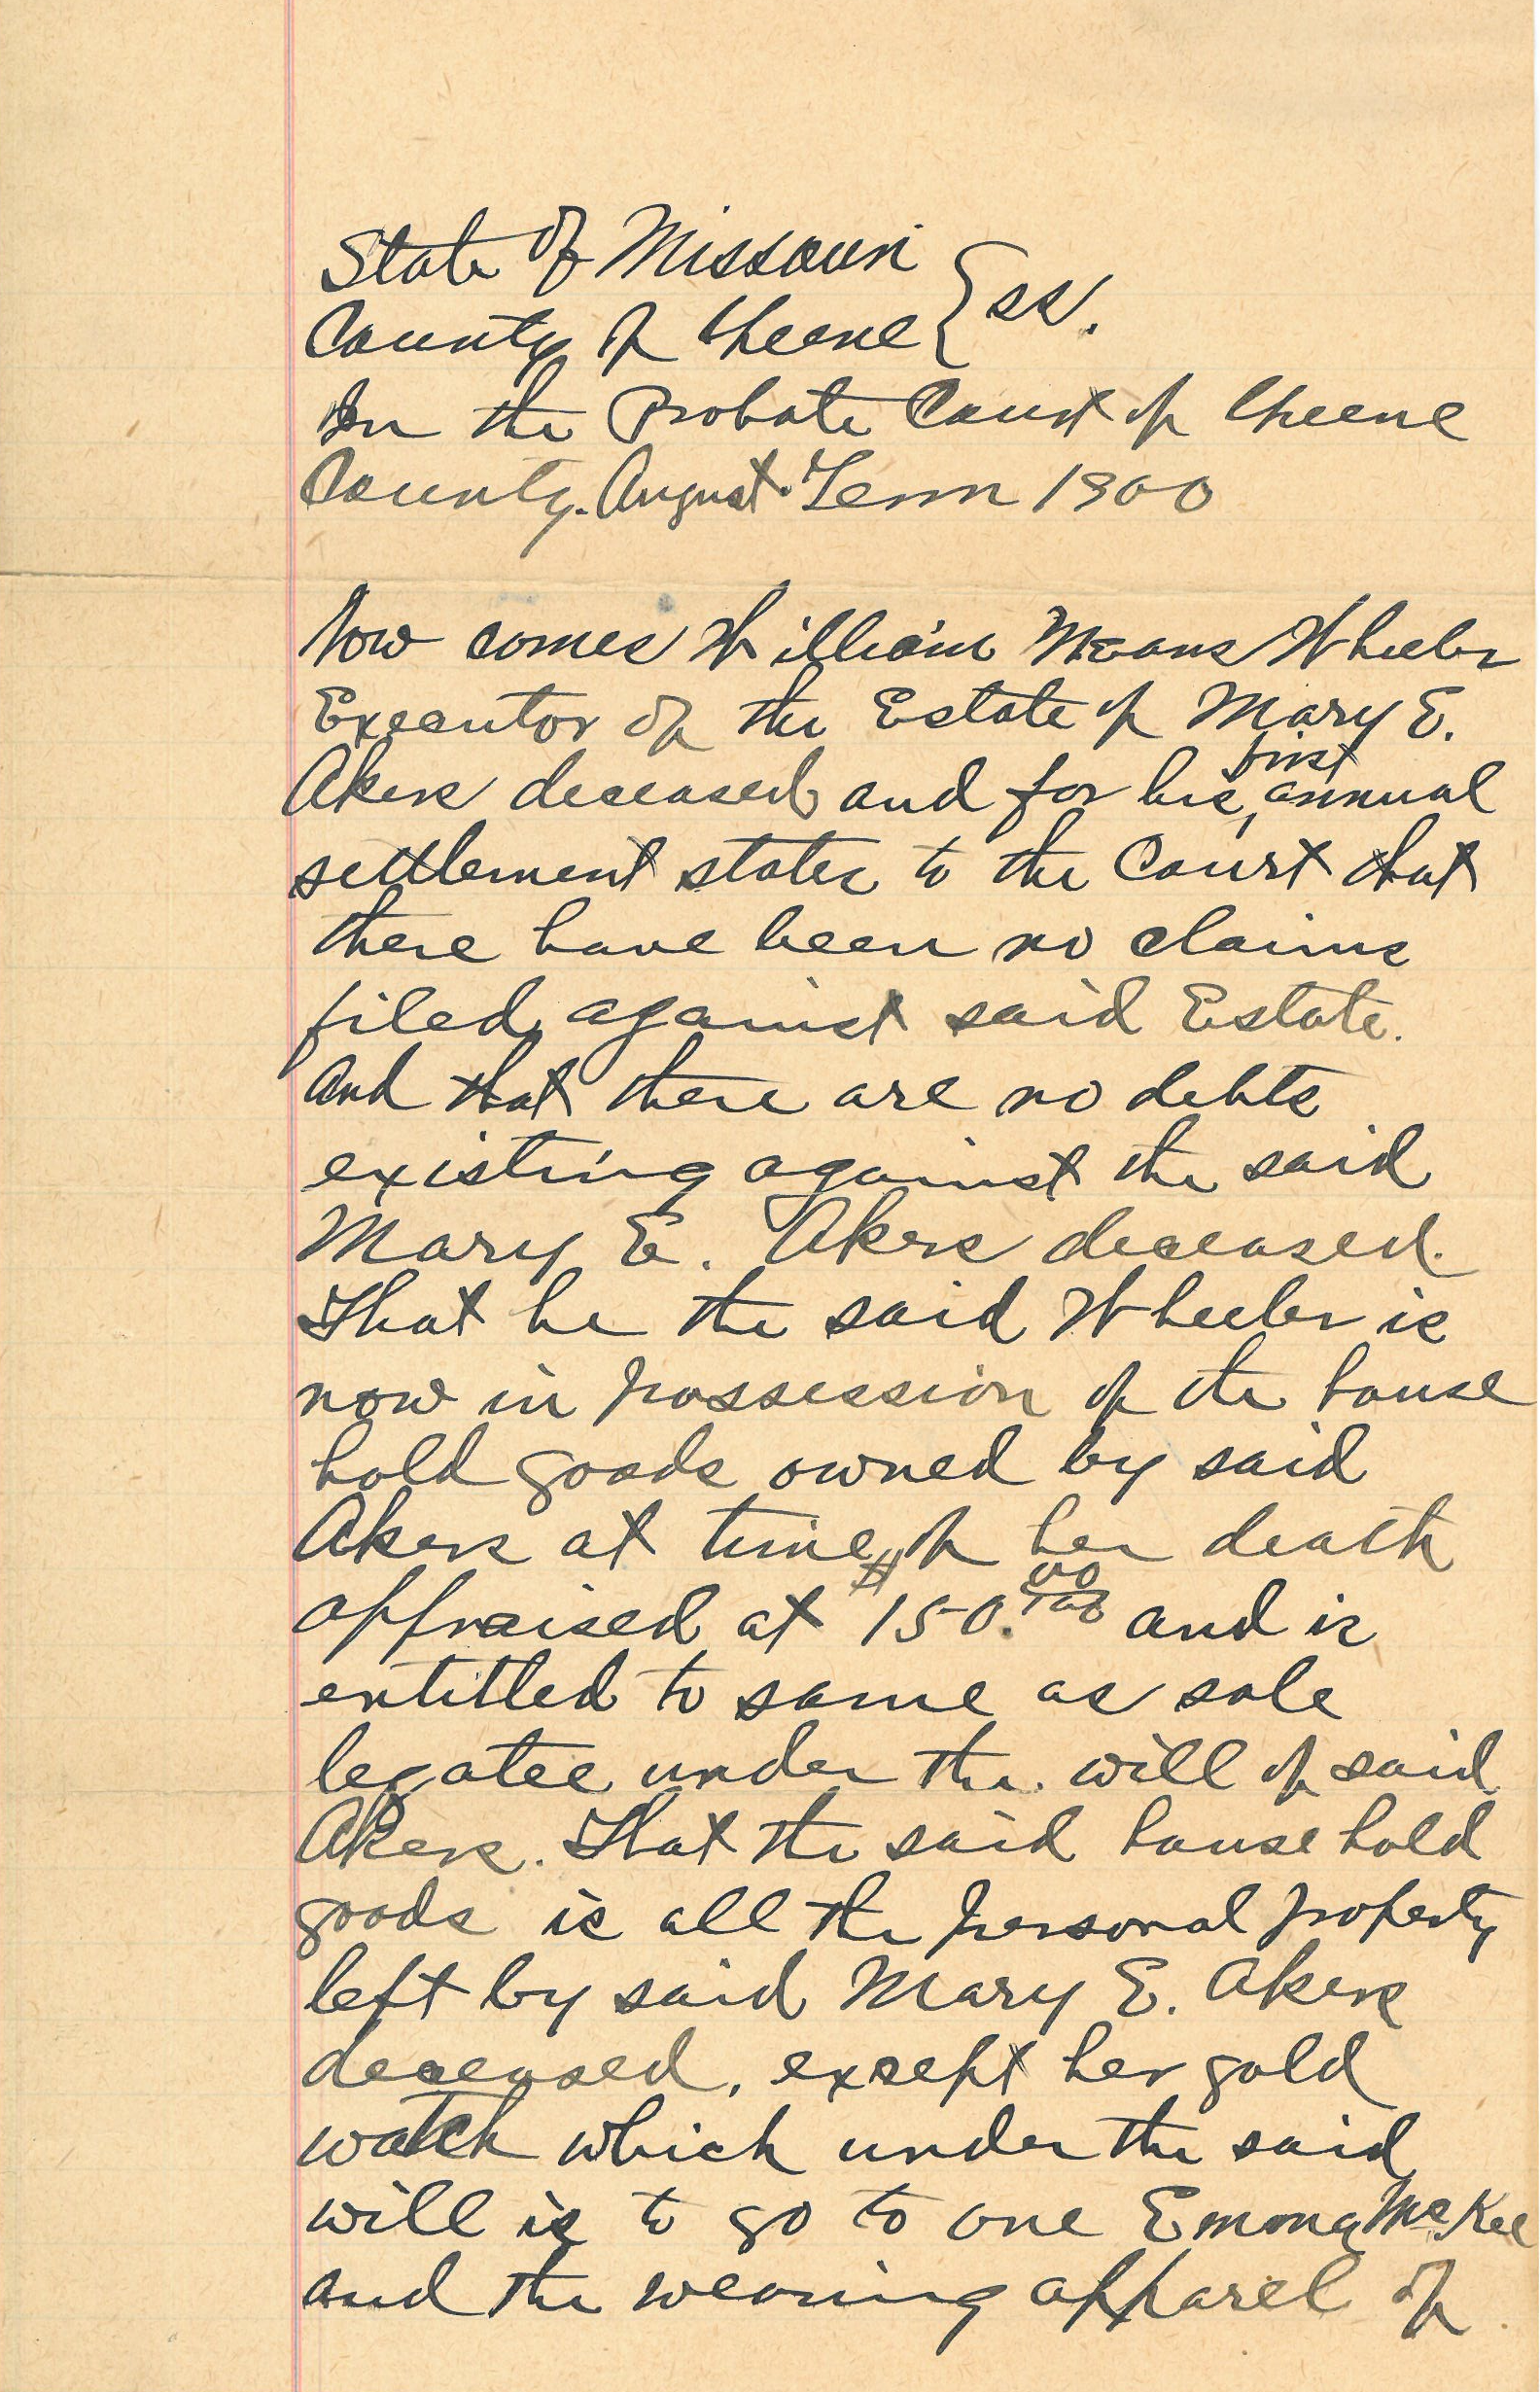 State of Missouri } ss.
County of Greene
In the Probate Court of Greene
County. August Term 1900
Now comes William Means Wheeler
Executor of the Estate of Mary E.
first
Akers deceased and for his, annual
settlement states to the Court that
there have been no claims
filed against said Estate.
And that there are no debts
existing against the said
Mary E. Akers deceased.
That he the said Wheeler is
now in possession of the house
hold goods owned by said
Akers at time of her death
appraised at $150.00/100 and is
entitled to same as sole
legatee under the will of said
Akers. That the said house hold
goods is all the personal property
left by said Mary E. Akers
deceased, except her gold
watch which under the said
will is to go to one Emma McKee
and the wearing apparel of